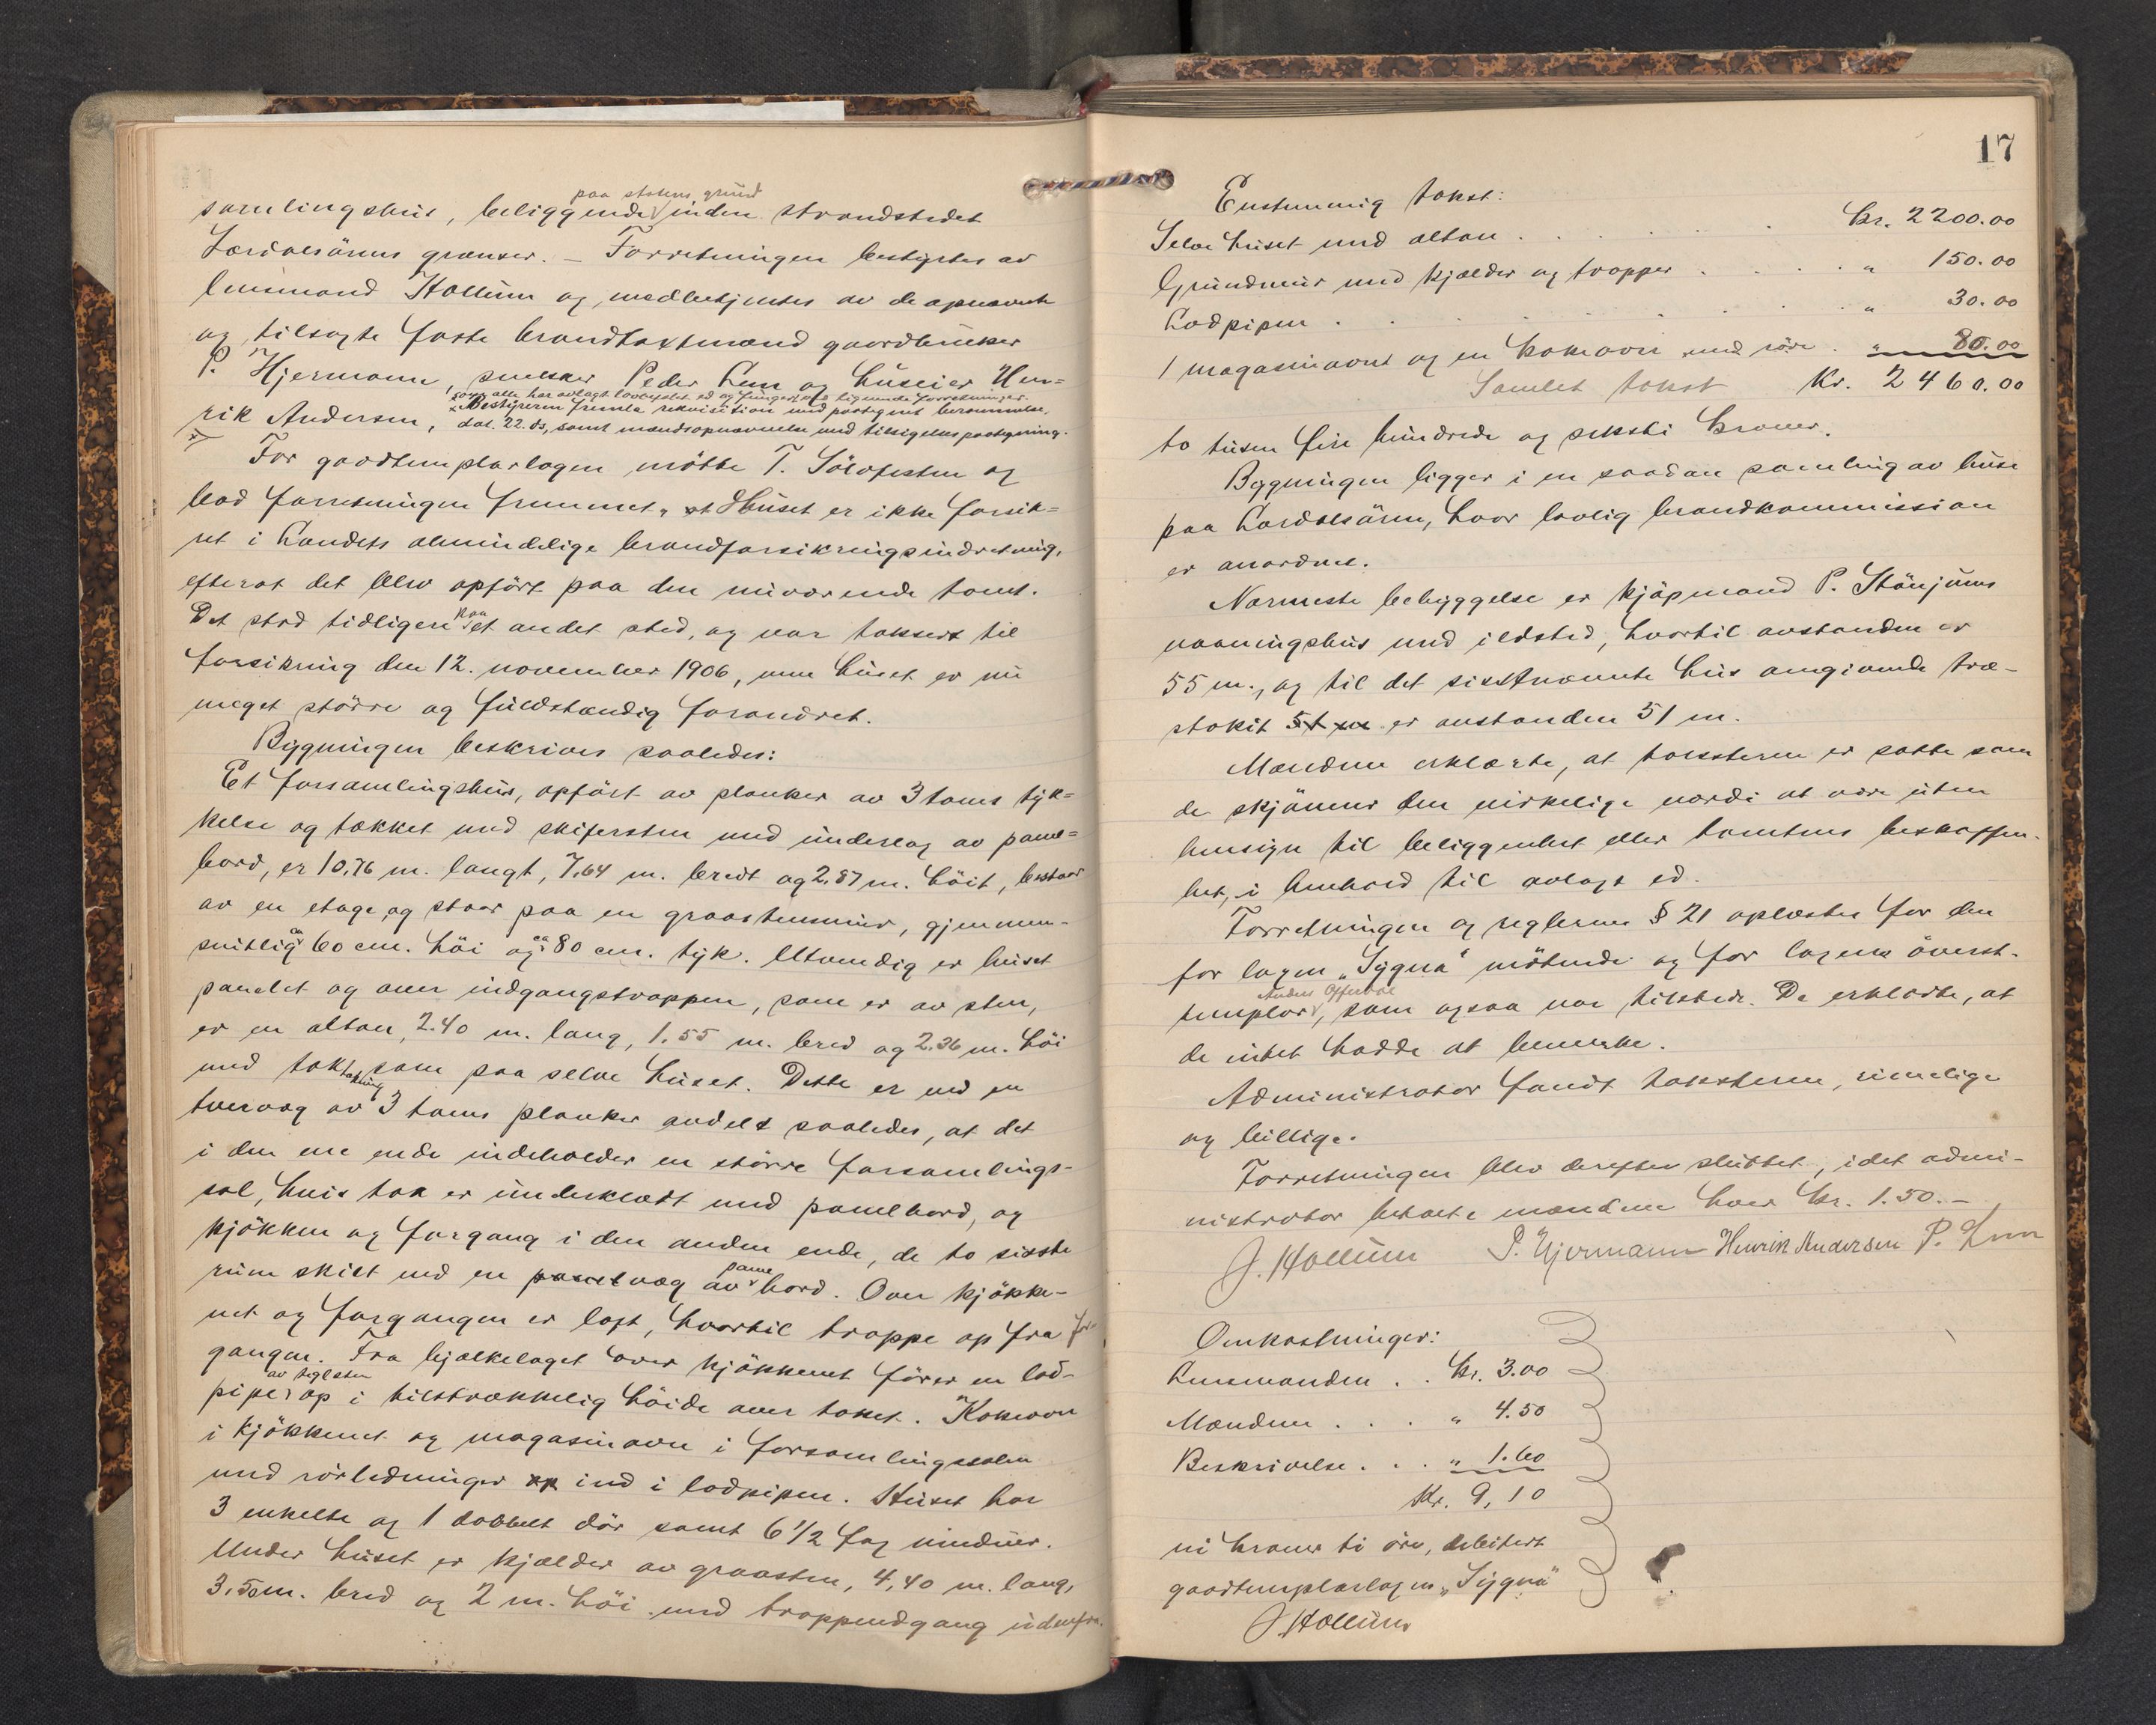 samlingshus, beliggende paa statens grund inden strandstedet
Lærdalsørens grænser. – Forretningen bestyrtes av
lensmand Hollum og medbetjentes av de opnævnte
og tilsagte faste brandtaxtmænd gaardbruker
P. Hjermann, snekker Peder Lem og huseier Hen=
rik Andersen, som alle har avlagt lovbefalet ed og fungert ved lignende forretninger.
x Bestyreren fremla rekvisition med paategnet berammelse,
dat. 22. ds, samt mandsopnævnelse med tilsigelsespaategning.
For goodtemplarlogen møtte T. Sölvfesten og
bad forretningen fremmet. Huset er ikke forsik=
ret i Landets almindelige brandforsikringsindretning,
efterat det blev opført paa den nuværende tomt.
Det stod tidligere paa et andet sted, og var taksert til
forsikring den 12. november 1906, men huset er nu
meget større og fuldstændig forandret.
Bygningen beskrives saaledes:
Et forsamlingshus, opført av planker av 3 toms tyk=
kelse og tækket med skifersten med underlag av panel=
bord, er 10,76 m. langt, 7,64 m. bredt og 2,87 m. höit, bestaar
av en etage, og staar paa en graastensmur, gjennem-
snitlig ca 60 cm. höi og ca 80 cm. tyk. Utvendig er huset
panelet og over indgangstrappen, som er av sten,
er en altan, 2.40 m. lang, 1.55 m. bred og 2.36 m. höi
med taktækning som paa selve huset. Dette er ved en
tvervæg av 3 toms planker avdelt saaledes, at det
i den ene ende indeholder en större forsamlings-
sal, hvis tak er underklædt med panelbord, og
kjökken og forgang i den anden ende, de to sisste
rum skilt ved en væg av panelbord. Over kjökke-
net og forgangen er loft, hvortil trappe op fra for-
gangen. Fra bjælkelaget over kjökkenet förer en lod-
pipe av teglsten op i tilstrækkelig höide over taket. Kokeovn
i kjökkenet og magasinovn i forsamlingssalen
med rörledninger ind i lodpipen. Huset har
3 enkelte og 1 dobbelt dör samt 6 1/2 fag vinduer.
Under huset er kjælder av graasten, 4,40 m. lang,
3,50 m. bred og 2 m. höi med trappenedgang udenfra.
17
Enstemmig takst:
Selve huset med altan . . . . . . kr. 2200.00
Grundmur med kjælder og trapper . . . . „ 150.00
Lodpipen . . . . . . . . „ 30.00
1 magasinovn og en kokeovn med rör . „ 80.00
Samlet takst Kr. 2460.00
to tusen fire hundrede og seksti kroner.
Bygningen ligger i en saadan samling av huse
paa Lærdalsören, hvor lovlig brandkommission
er anordnet.
Nærmeste bebyggelse er kjöpmand P. Stönjums
vaaningshus med ildsted, hvortil avstanden er
55 m., og til det sisstnævnte hus omgivende træ-
stakit 51 m er avstanden 51 m.
Mændene erklærte, at taksterne er satte som
de skjönner den virkelige værdi at være uten
hensyn til beliggenhet eller tomtens beskaffen-
het, i henhold til avlagt ed.
Forretningen og reglernes § 21 oplæstes for den
for logen „Sygna" mötende og for logens överst-
templar Anders Offerdal, som ogsaa var tilstede. De erklærte, at
de intet hadde at bemerke.
Administrator fandt taksterne, rimelige
og billige.
Forretningen blev derefter sluttet, idet admi-
nistrator betalte mændene hver kr. 1.50. –
J. Hollum P. Hjermann Henrik Andersen P. Lem
Omkostninger:
Lensmanden . . kr. 3.00
Mændene . . . „ 4.50
Beskrivelse . . . „ 1.60
Kr. 9,10
ni kroner ti öre, debitert
goodtemplarlogen „Sygna"
J. Hollum